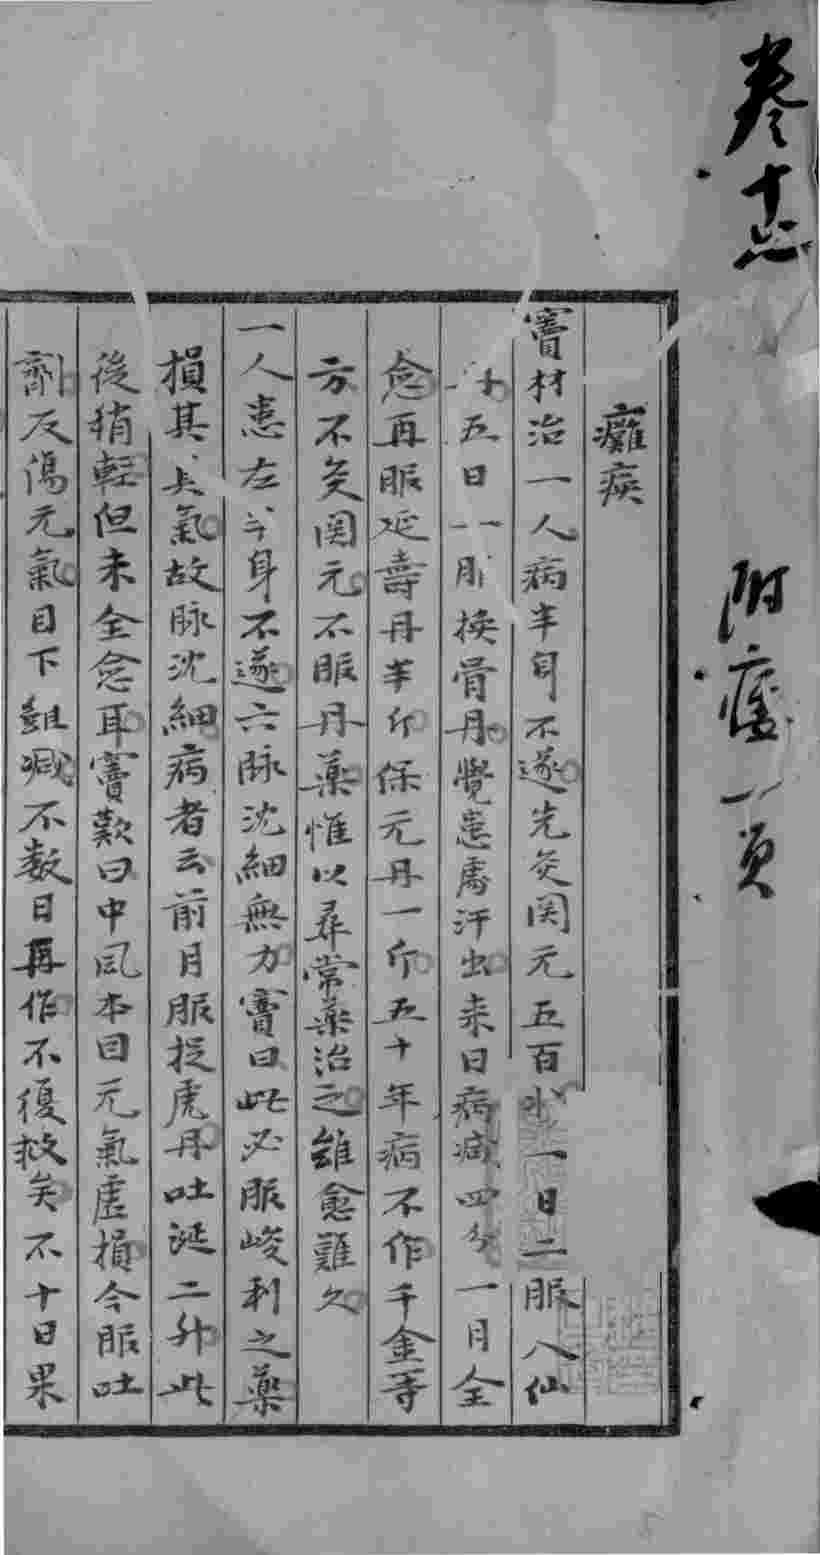 卷十六
附痿一頁
癱瘓
竇材治一人病半身不遂先灸関元五百壯一日二服八仙
五日一服換骨丹覺患處汗出来日病减四分一月全
愈再服延壽丹半斤保元丹一斤五十年病不作千金等
方不灸関元不服丹藥惟以尋常藥治之雖愈難久
一人患左半身不遂六脉沈細無力竇曰此必服峻利之藥
損其真氣故脉沈細病者云前月服捉虎丹吐涎二升此
後稍輕但未全愈耳竇歎曰中風本因元氣虛損今服吐
劑反傷元氣目下雖减不数日再作不復救矣不十日果